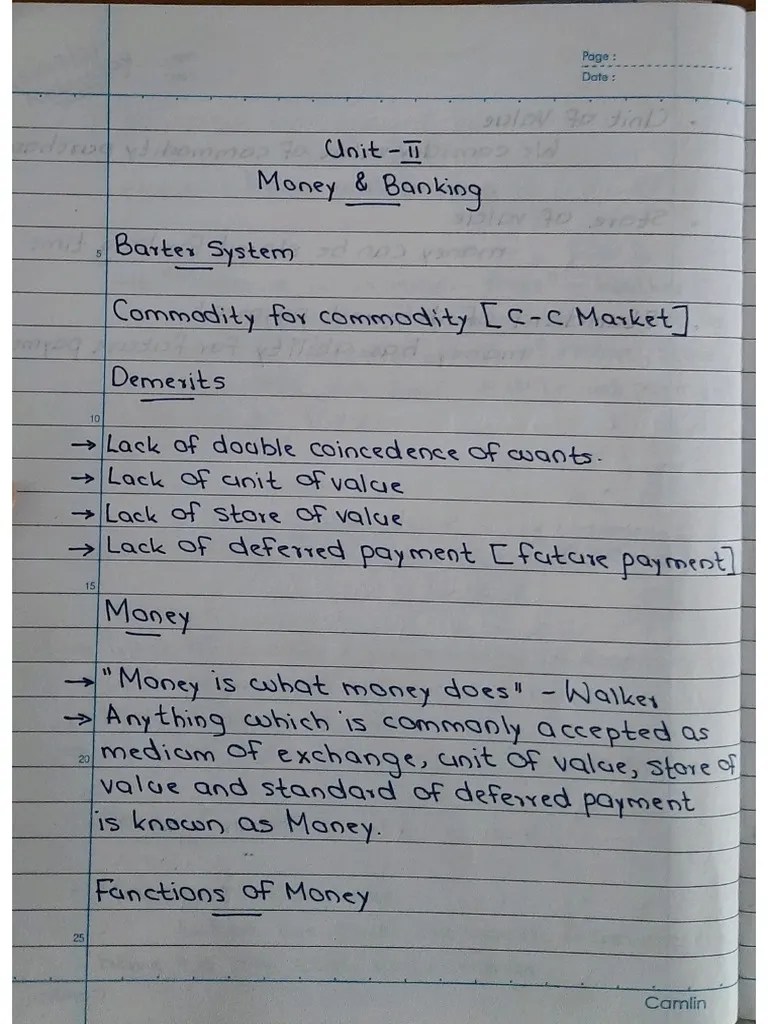 Page :
Date :
Unit - II
Money & Banking
5
Barter System
Commodity for commodity [C-C Market]
Demerits
10
→ Lack of double coincedence of wants.
→ Lack of unit of value
→ Lack of store of value
→ Lack of deferred payment [future payment]
15
Money
→ "Money is what money does" - Walker
→ Anything which is commonly accepted as
20 medium of exchange, unit of value, store of
value and standard of deferred payment
is known as Money.
Functions of Money
25
Camlin